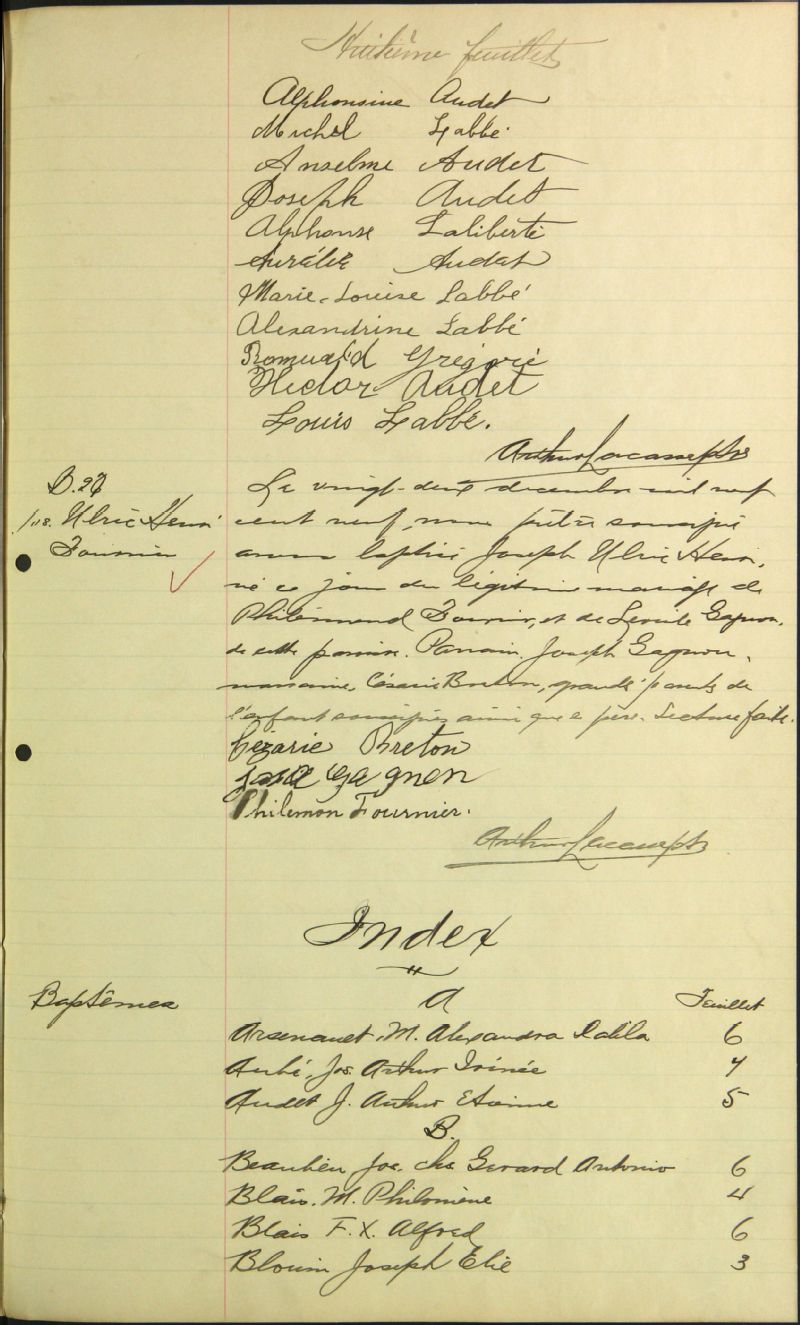 Huitième feuillet
Alphonsine Audet
Michel Labbé.
Anselme Audet
Joseph Audet
Alphonse Laliberté
Aurélie Audet
Marie-Louise Labbé
Alexandrine Labbé
Romuald Grégoire
Hector Audet
Louis Labbé.
Arthur Lacasse ptre
B.27
Jos. Ulric Henri
Fournier
Le vingt-deux decembre mil neuf
cent neuf, nous prêtre soussigné
avons baptisé Joseph Ulric Henri,
né ce jour du légitime mariage de
Philémond Fournier, et de Gagnon,
de cette paroisse. Parrain, Joseph Gagnon,
marraine, Césarie Breton, grands parents de
l'enfant soussignés ainsi que le père. Lecture faite.
Cézarie Breton
José Gagnon
Philemon Fournier.
Arthur Lacasse ptr
Index
"
Baptêmes A Feuillet
Arsenault, M. Alexandra Dalila 6
Aubé, Jos Arthur Irénée 4
Audet J. Arthur Etienne 5
B.
Beaulieu Jos. chs Gerard Antonio 6
Blais, M. Philomène 4
Blais F. X. Alfred 6
Blouin Joseph Elie 3